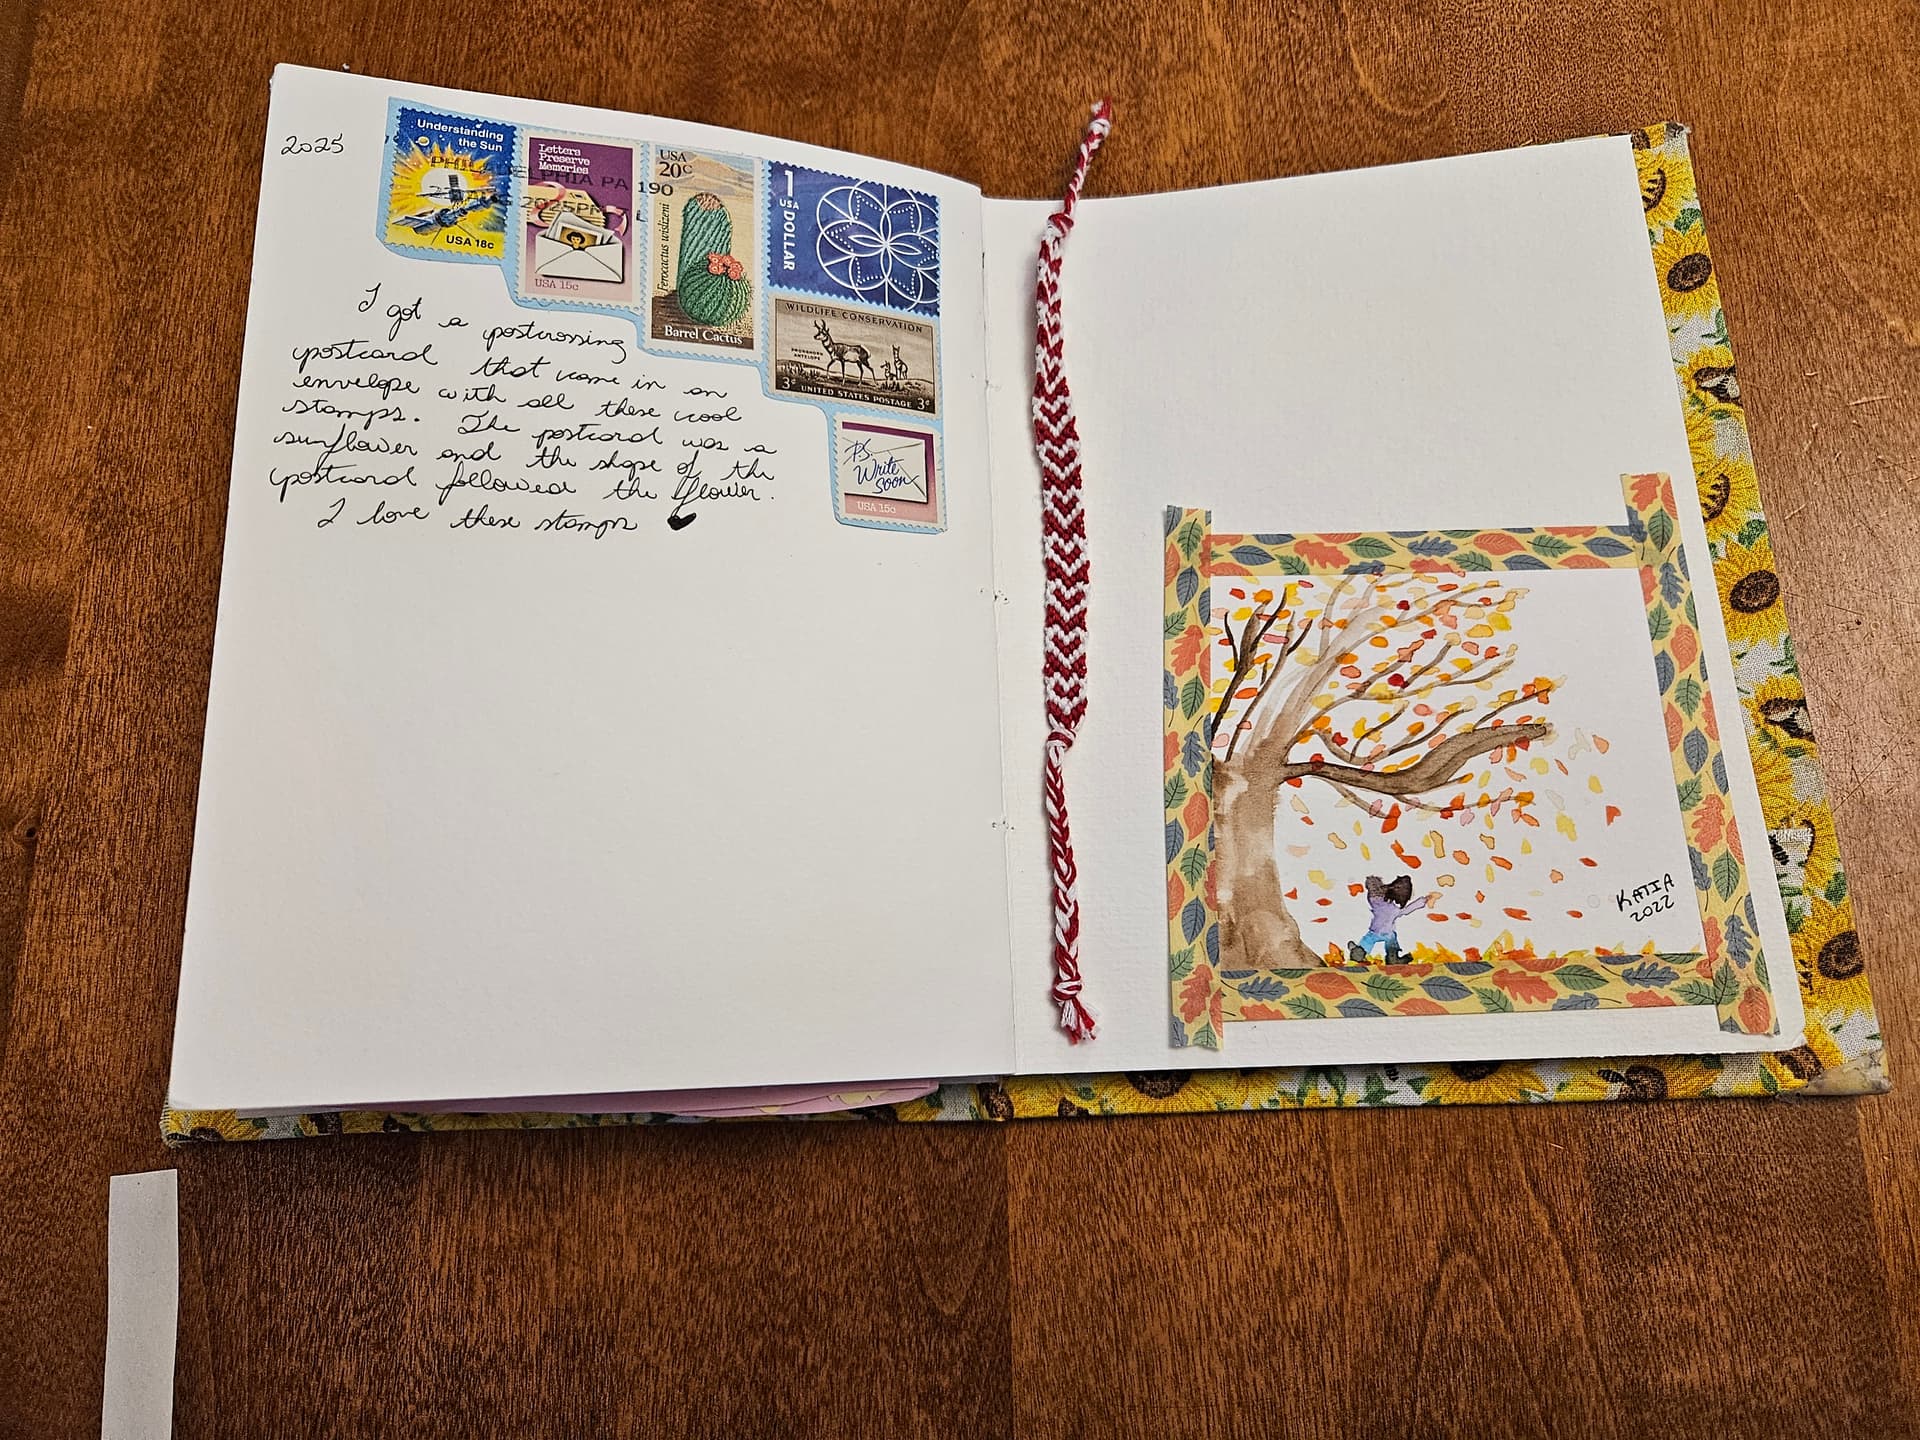 2025
Understanding
the Sun
USA 18c
PHILADELPHIA PA 190
2025PM L
Letters
Preserve
Memories
USA 15c
USA
20c
Ferocactus wislizeni
Barrel Cactus
1
USA
DOLLAR
WILDLIFE CONSERVATION
PRONGHORN
ANTELOPE
3¢ UNITED STATES POSTAGE 3¢
P.S.
Write
Soon
USA 15c
I got a postcrossing
postcard that came in an
envelope with all these cool
stamps. The postcard was a
sunflower and the shape of the
postcard followed the flower.
I love these stamps
KATIA
2022